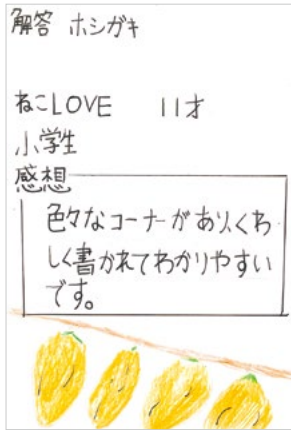 解答 ホシガキ
ねこLOVE 11才
小学生
感想
色々なコーナーがあり、くわ
しく書かれてわかりやすい
です。